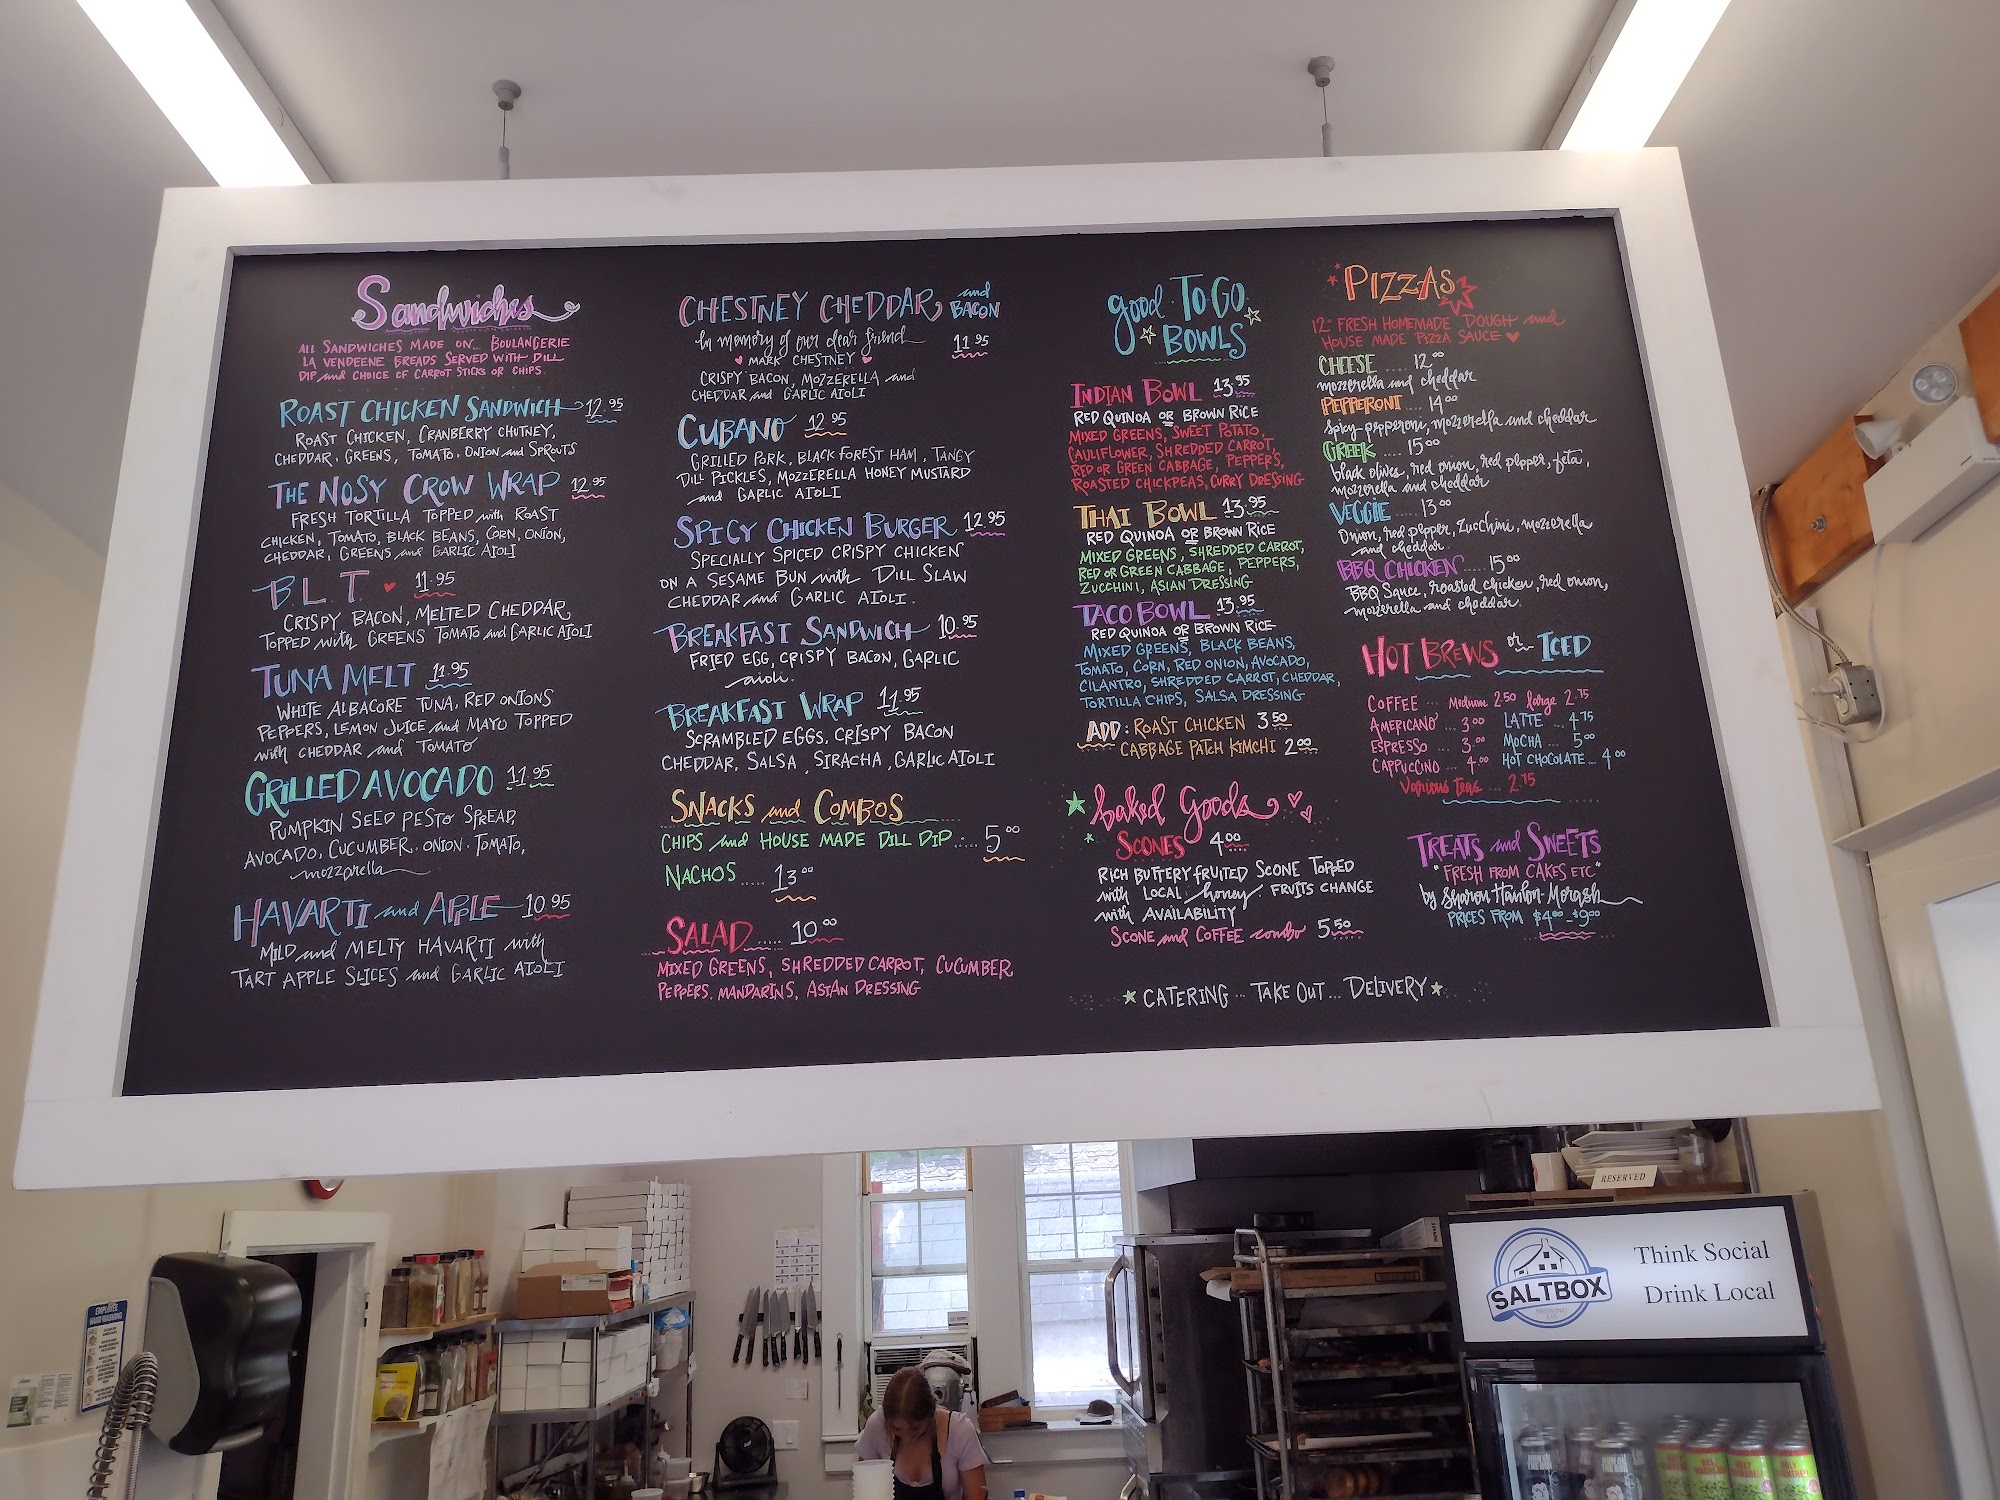 Sandwiches
ALL SANDWICHES MADE ON... BOULANGERIE
LA VENDEENE BREADS SERVED WITH DILL
DIP and CHOICE OF CARROT STICKS OR CHIPS.
ROAST CHICKEN SANDWICH 12.95
ROAST CHICKEN, CRANBERRY CHUTNEY,
CHEDDAR, GREENS, TOMATO, ONION and SPROUTS
THE NOSY CROW WRAP 12.95
FRESH TORTILLA TOPPED with ROAST
CHICKEN, TOMATO, BLACK BEANS, CORN, ONION,
CHEDDAR, GREENS and GARLIC AIOLI
B.L.T. 11.95
CRISPY BACON, MELTED CHEDDAR,
TOPPED with GREENS TOMATO and GARLIC AIOLI
TUNA MELT 11.95
WHITE ALBACORE TUNA, RED ONIONS
PEPPERS, LEMON JUICE and MAYO TOPPED
with CHEDDAR and TOMATO
GRILLED AVOCADO 11.95
PUMPKIN SEED PESTO SPREAD,
AVOCADO, CUCUMBER. ONION. TOMATO,
mozzarella
HAVARTI and APPLE 10.95
MILD and MELTY HAVARTI with
TART APPLE SLICES and GARLIC AIOLI
CHESTNEY CHEDDAR and BACON
In memory of our dear friend 11.95
MARK CHESTNEY
CRISPY BACON, MOZZERELLA and
CHEDDAR and GARLIC AIOLI
CUBANO 12.95
GRILLED PORK, BLACK FOREST HAM, TANGY
DILL PICKLES, MOZZERELLA HONEY MUSTARD
and GARLIC AIOLI
SPICY CHICKEN BURGER 12.95
SPECIALLY SPICED CRISPY CHICKEN
ON A SESAME BUN with DILL SLAW
CHEDDAR and GARLIC AIOLI.
BREAKFAST SANDWICH 10.95
FRIED EGG, CRISPY BACON, GARLIC
aioli.
BREAKFAST WRAP 11.95
SCRAMBLED EGGS, CRISPY BACON
CHEDDAR, SALSA, SIRACHA, GARLIC AIOLI
SNACKS and COMBOS
CHIPS and HOUSE MADE DILL DIP..... 5.00
NACHOS ..... 13.00
SALAD ..... 10.00
MIXED GREENS, SHREDDED CARROT, CUCUMBER
PEPPERS, MANDARINS, ASIAN DRESSING
good TO GO
BOWLS
INDIAN BOWL 13.95
RED QUINOA OR BROWN RICE
MIXED GREENS, SWEET POTATO,
CAULIFLOWER, SHREDDED CARROT,
RED OR GREEN CABBAGE, PEPPERS,
ROASTED CHICKPEAS, CURRY DRESSING
THAI BOWL 13.95
RED QUINOA OR BROWN RICE
MIXED GREENS, SHREDDED CARROT,
RED OR GREEN CABBAGE, PEPPERS,
ZUCCHINI, ASIAN DRESSING
TACO BOWL 13.95
RED QUINOA OR BROWN RICE
MIXED GREENS, BLACK BEANS,
TOMATO, CORN, RED ONION, AVOCADO,
CILANTRO, SHREDDED CARROT, CHEDDAR,
TORTILLA CHIPS, SALSA DRESSING
ADD: ROAST CHICKEN 3.50
CABBAGE PATCH KIMCHI 2.00
baked Goods
SCONES 4.00
RICH BUTTERY FRUITED SCONE TOPPED
with LOCAL honey. FRUITS CHANGE
with AVAILABILITY
SCONE and COFFEE combo 5.50
PIZZAS
12" FRESH HOMEMADE DOUGH and
HOUSE MADE PIZZA SAUCE
CHEESE ..... 12.00
mozzerella and cheddar
PEPPERONI ... 14.00
Spicy pepperoni, mozzerella and cheddar
GREEK .... 15.00
black olives, red onion, red pepper, feta,
mozzerella and cheddar
VEGGIE .... 13.00
Onion, red pepper, zucchini, mozzerella
and cheddar.
BBQ CHICKEN .... 15.00
BBQ Sauce, roasted chicken, red onion,
mozzerella and cheddar.
HOT BREWS or ICED
COFFEE ... Medium 2.50 large 2.75
AMERICANO ... 3.00 LATTE ... 4.75
ESPRESSO ... 3.00 MOCHA ... 5.00
CAPPUCCINO ... 4.00 HOT CHOCOLATE... 4.00
Various Teas ... 2.75
TREATS and SWEETS
"FRESH FROM CAKES ETC"
by Sharon Hanlon-Morash
PRICES FROM $4.00-$9.00
CATERING ... TAKE OUT... DELIVERY
RESERVED
SALTBOX
BREWING
Think Social
Drink Local
EMPLOYEE
HAND WASHING